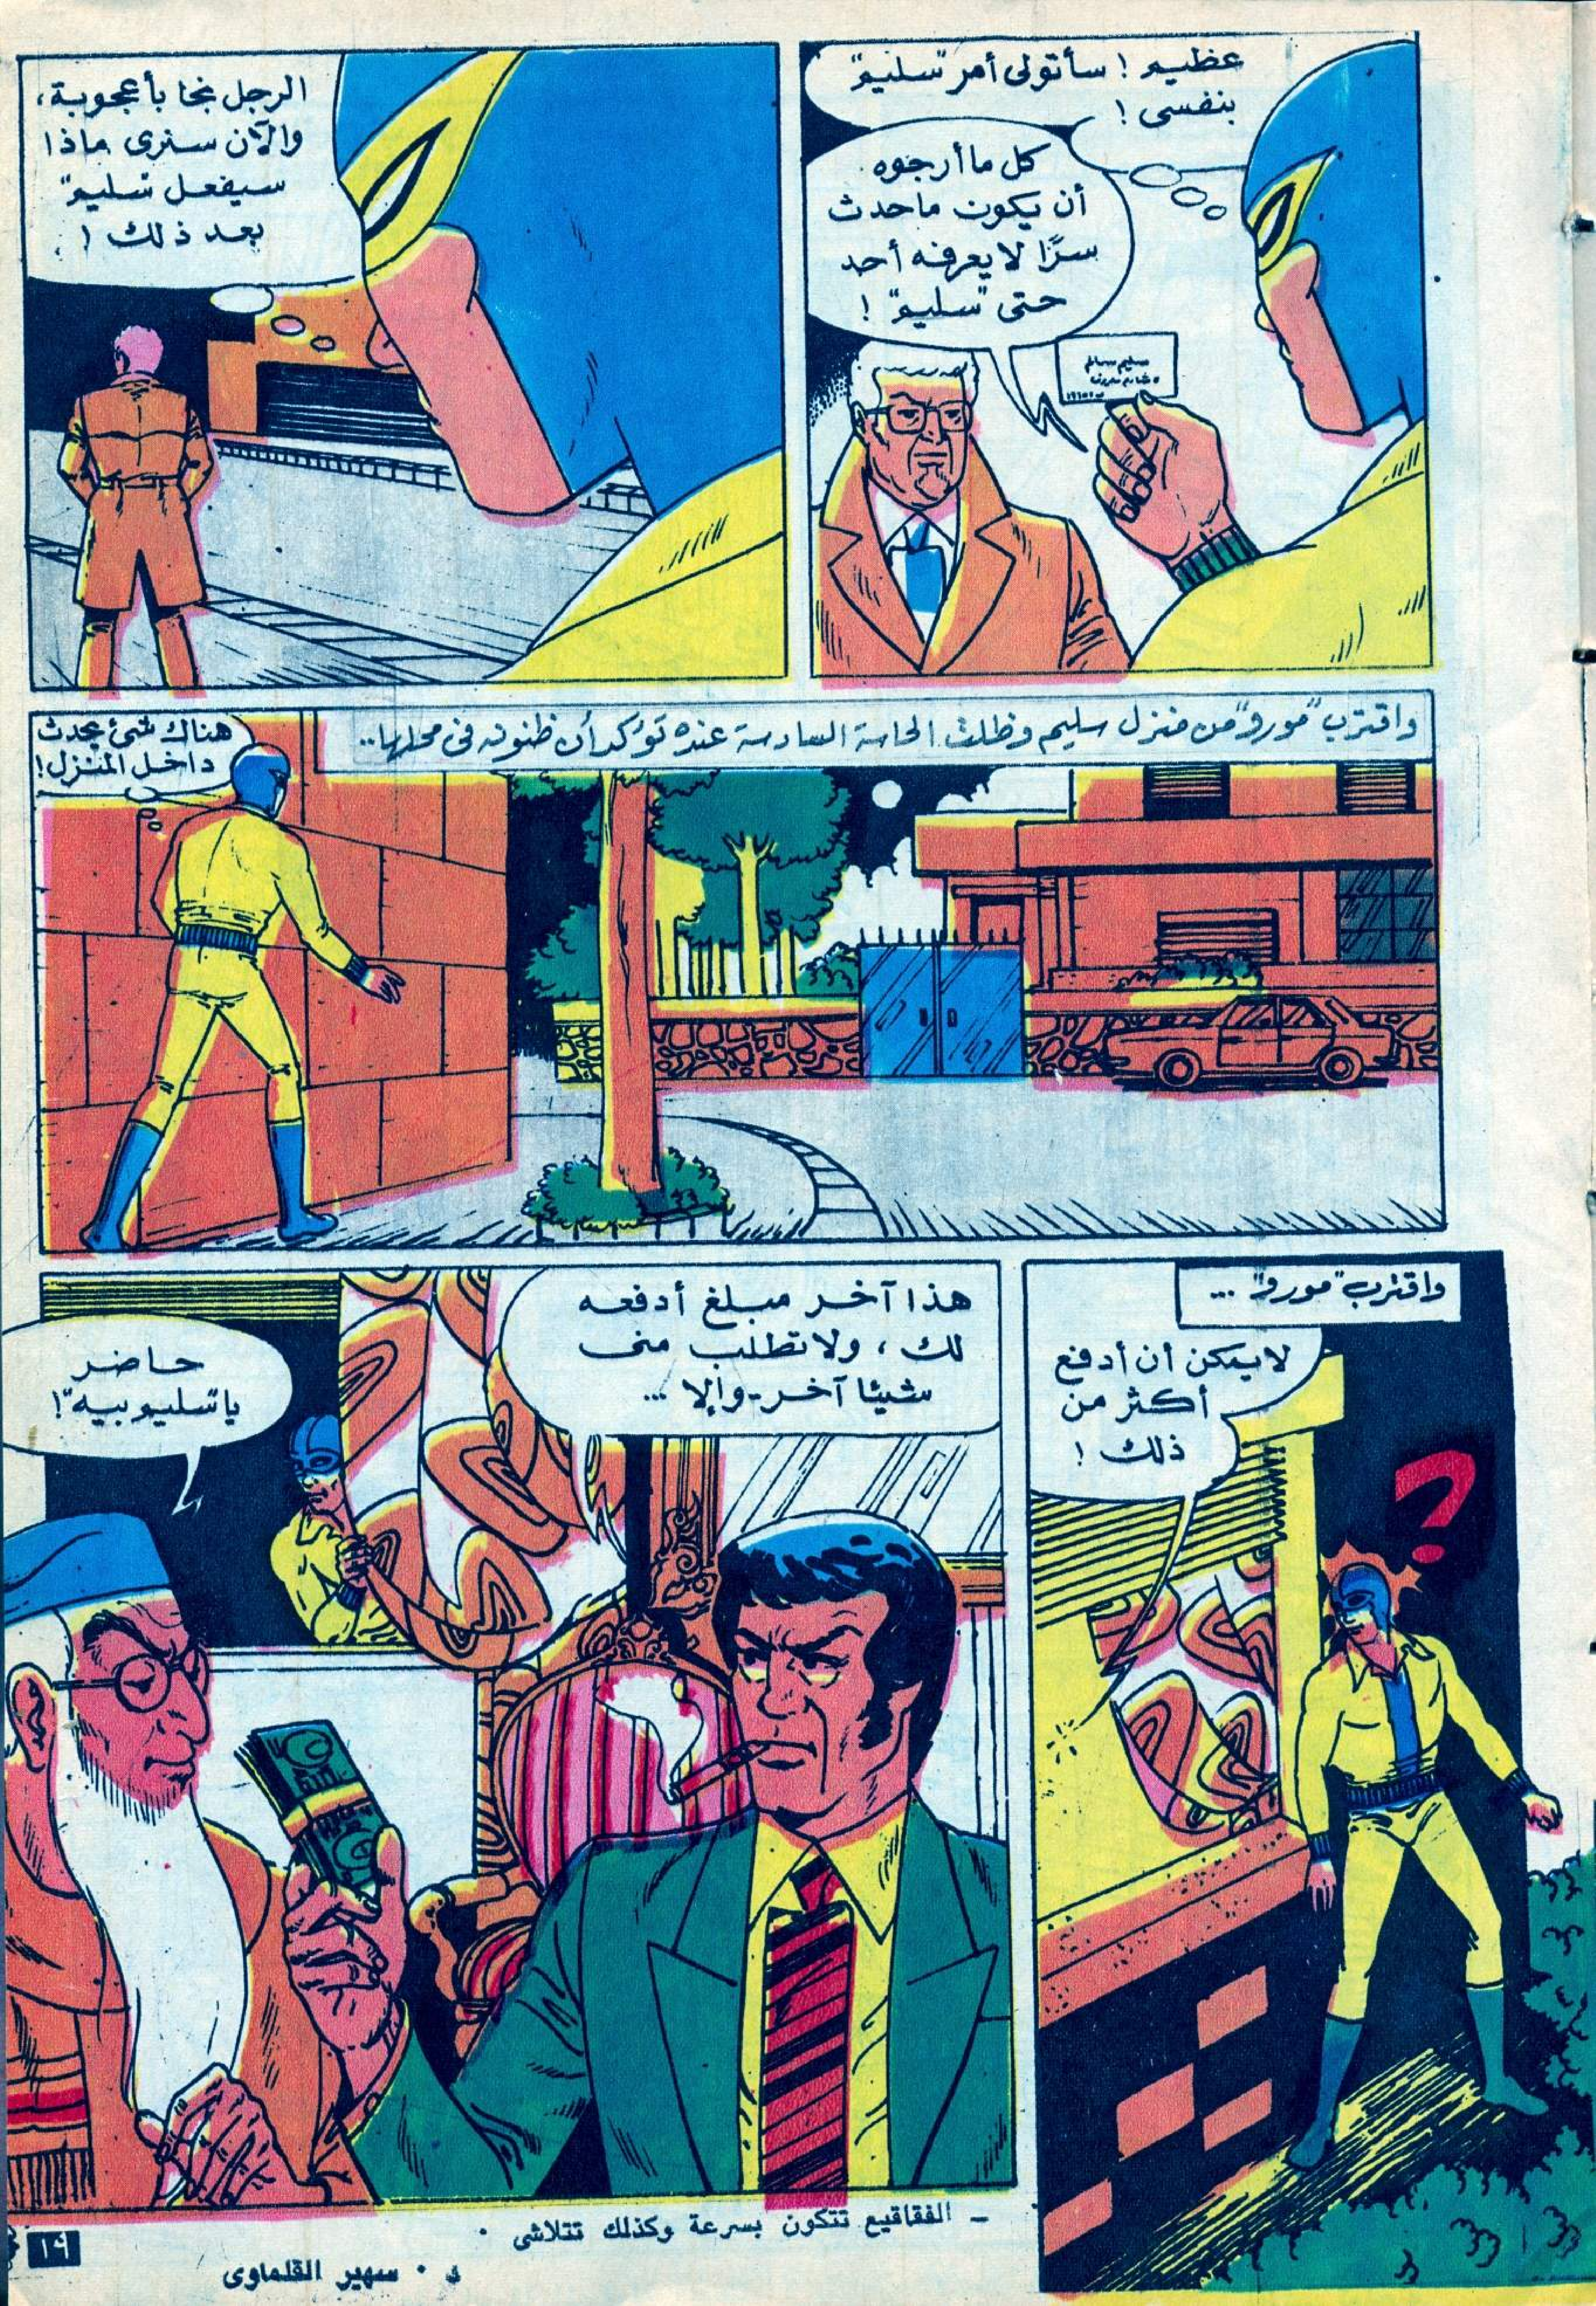 عظيم ! سأتولى أمر "سليم"
بنفسى !
كل ما أرجوه
أن يكون ما حدث
سرًا لا يعرفه أحد
حتى "سليم" !
الرجل نجا بأعجوبة،
والآن سنرى ماذا
سيفعل "سليم"
بعد ذلك !
واقترب "مورو" من منزل سليم وظلت الحاسة السادسة عنده تؤكد أن ظنونه فى محلها..
هناك شئ يحدث
داخل المنزل!
واقترب "مورو" ...
لا يمكن أن أدفع
أكثر من
ذلك !
هذا آخر مبلغ أدفعه
لك ، ولا تطلب منى
شيئا آخر - وإلا ...
حاضر
يا "سليم بيه"!
ـ الفقاقيع تتكون بسرعة وكذلك تتلاشى .
د . سهير القلماوى